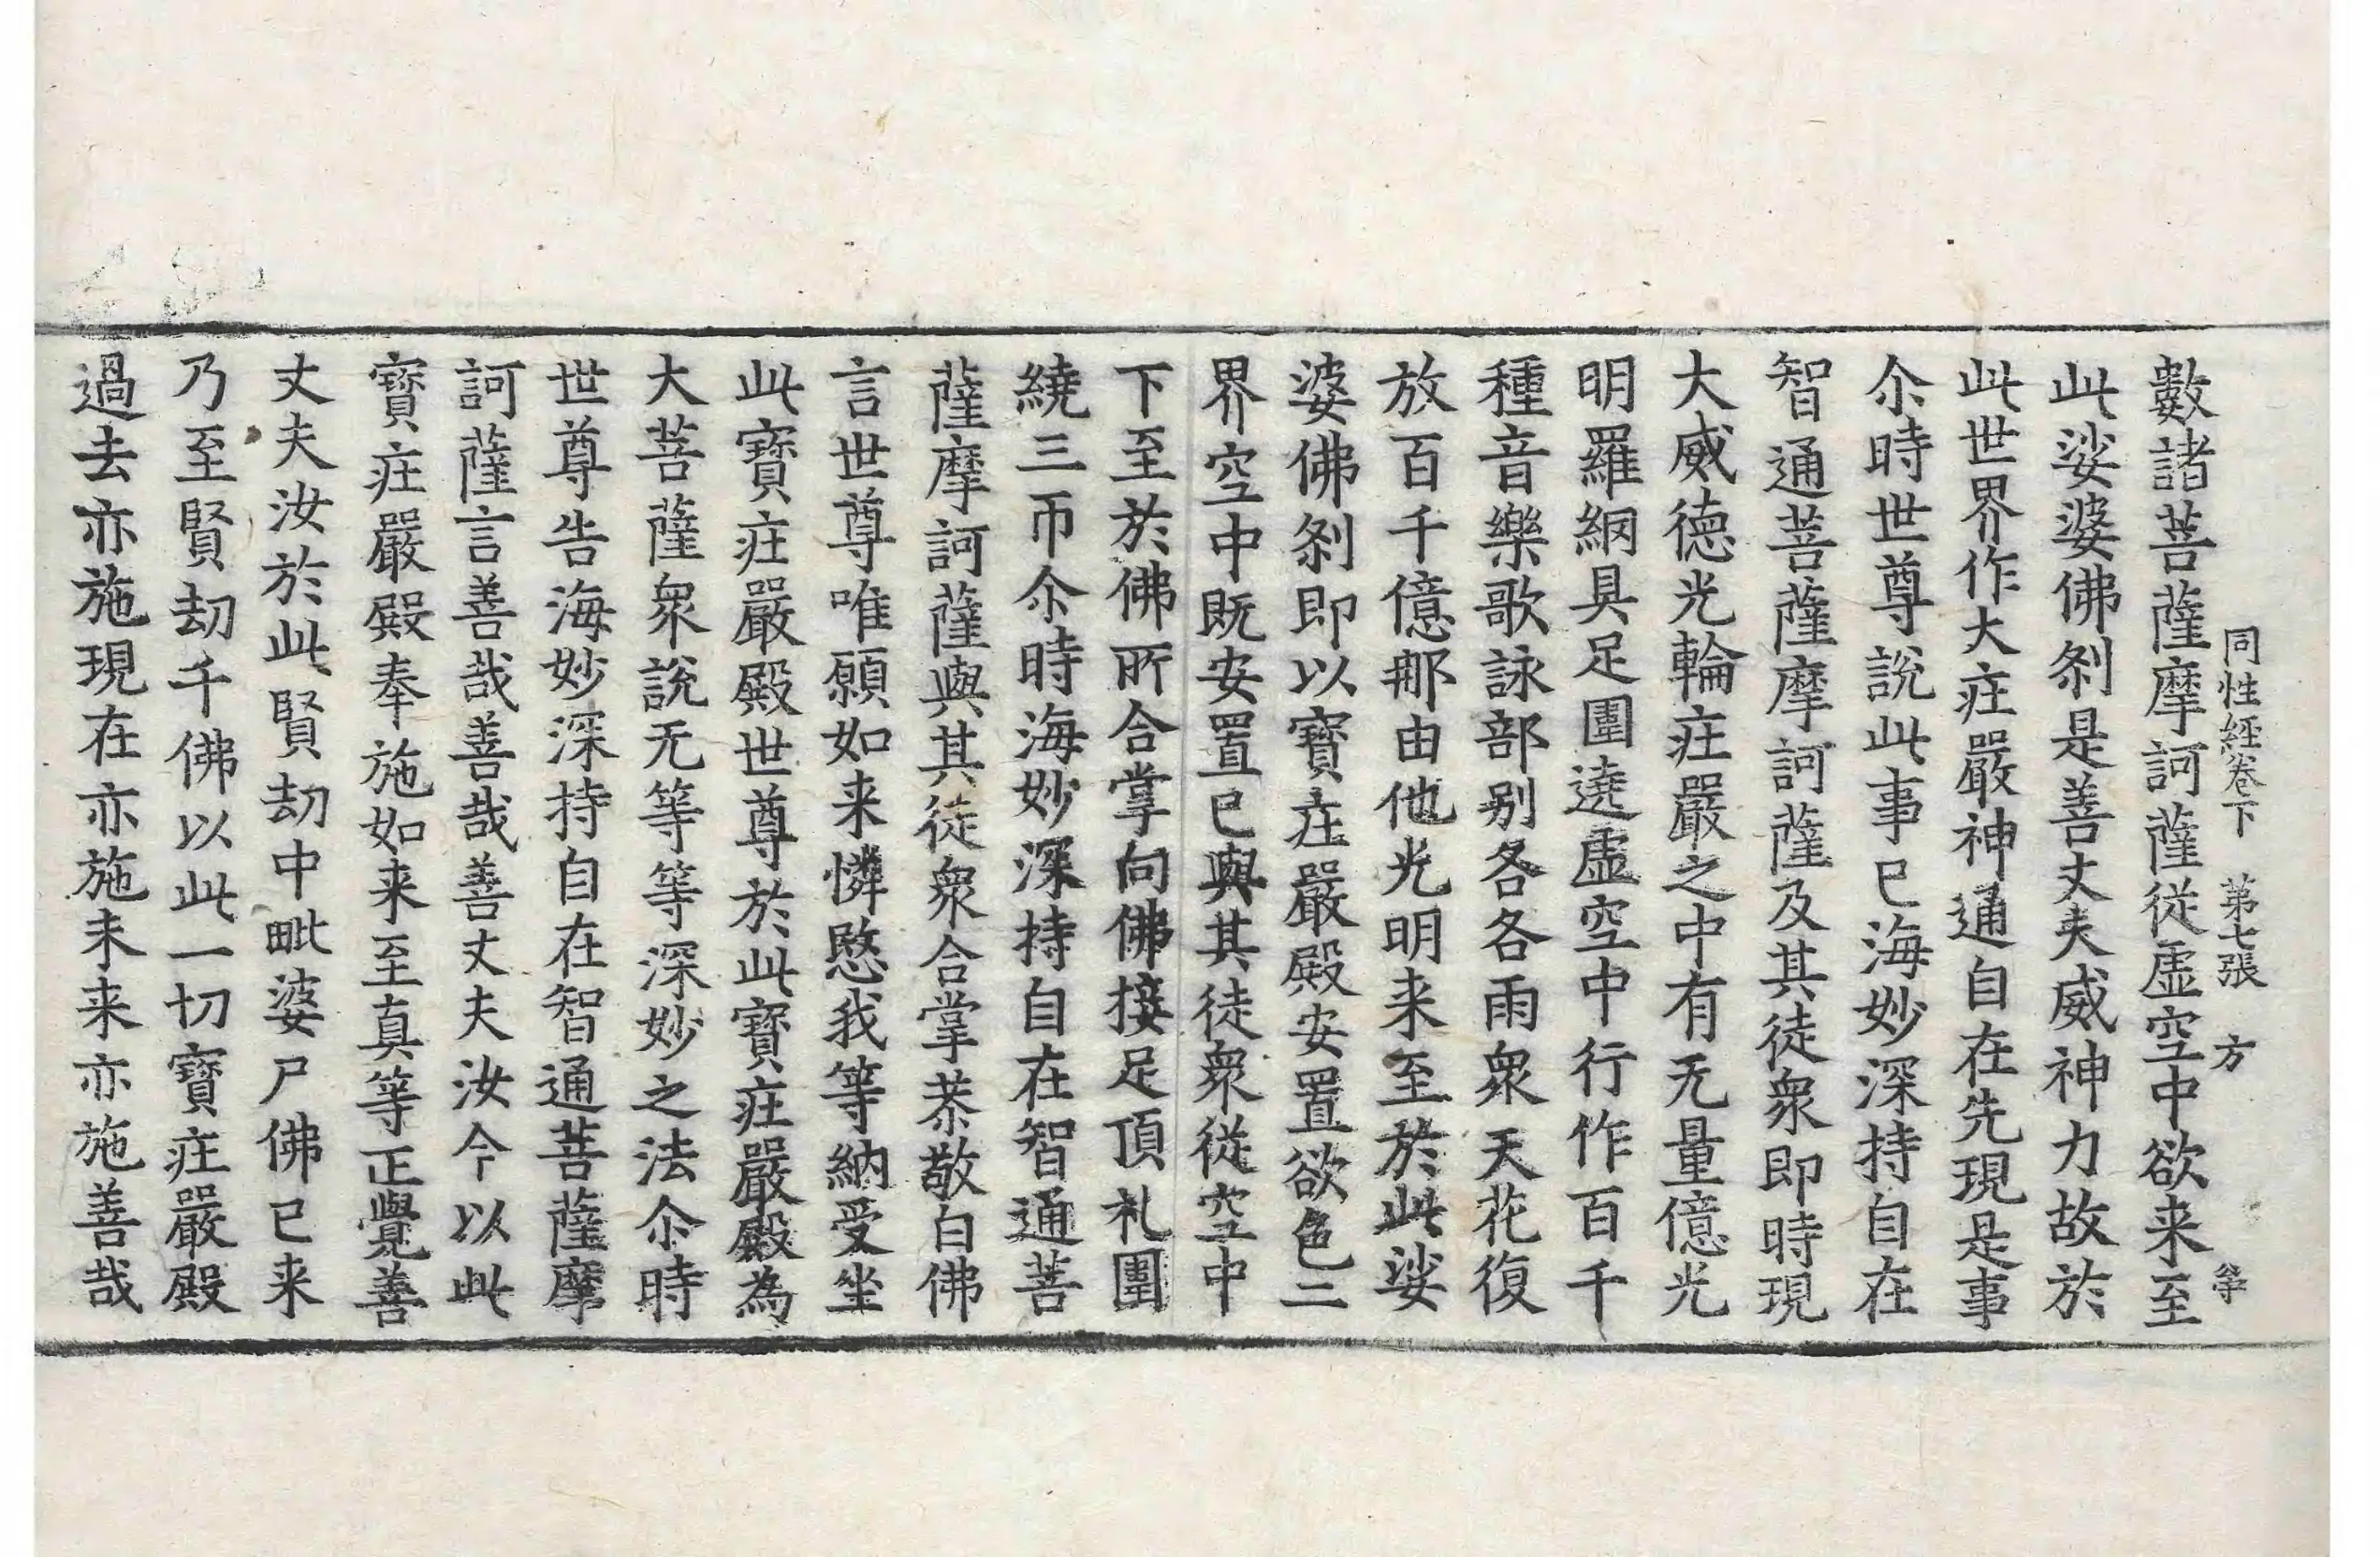 同性經卷下 第七張 方
數諸菩薩摩訶薩従虛空中欲来至
此娑婆佛刹是善丈夫威神力故於
此世界作大庄嚴神通自在先現是事
尒時世尊說此事已海妙深持自在
智通菩薩摩訶薩及其徒衆即時現
大威德光輪庄嚴之中有无量億光
明羅網具足圍遶虛空中行作百千
種音樂歌詠部别各各雨衆天花復
放百千億那由他光明来至於此娑
婆佛刹即以寶庄嚴殿安置欲色二
界空中既安置已與其徒衆従空中
下至於佛所合掌向佛接足頂礼圍
繞三帀尒時海妙深持自在智通菩
薩摩訶薩與其徒衆合掌恭敬白佛
言世尊唯願如来憐愍我等納受坐
此寶庄嚴殿世尊於此寶庄嚴殿為
大菩薩衆說无等等深妙之法尒時
世尊告海妙深持自在智通菩薩摩
訶薩言善哉善哉善丈夫汝今以此
寶庄嚴殿奉施如来至真等正覺善
丈夫汝於此賢劫中毗婆尸佛已来
乃至賢劫千佛以此一切寶庄嚴殿
過去亦施現在亦施未来亦施善哉